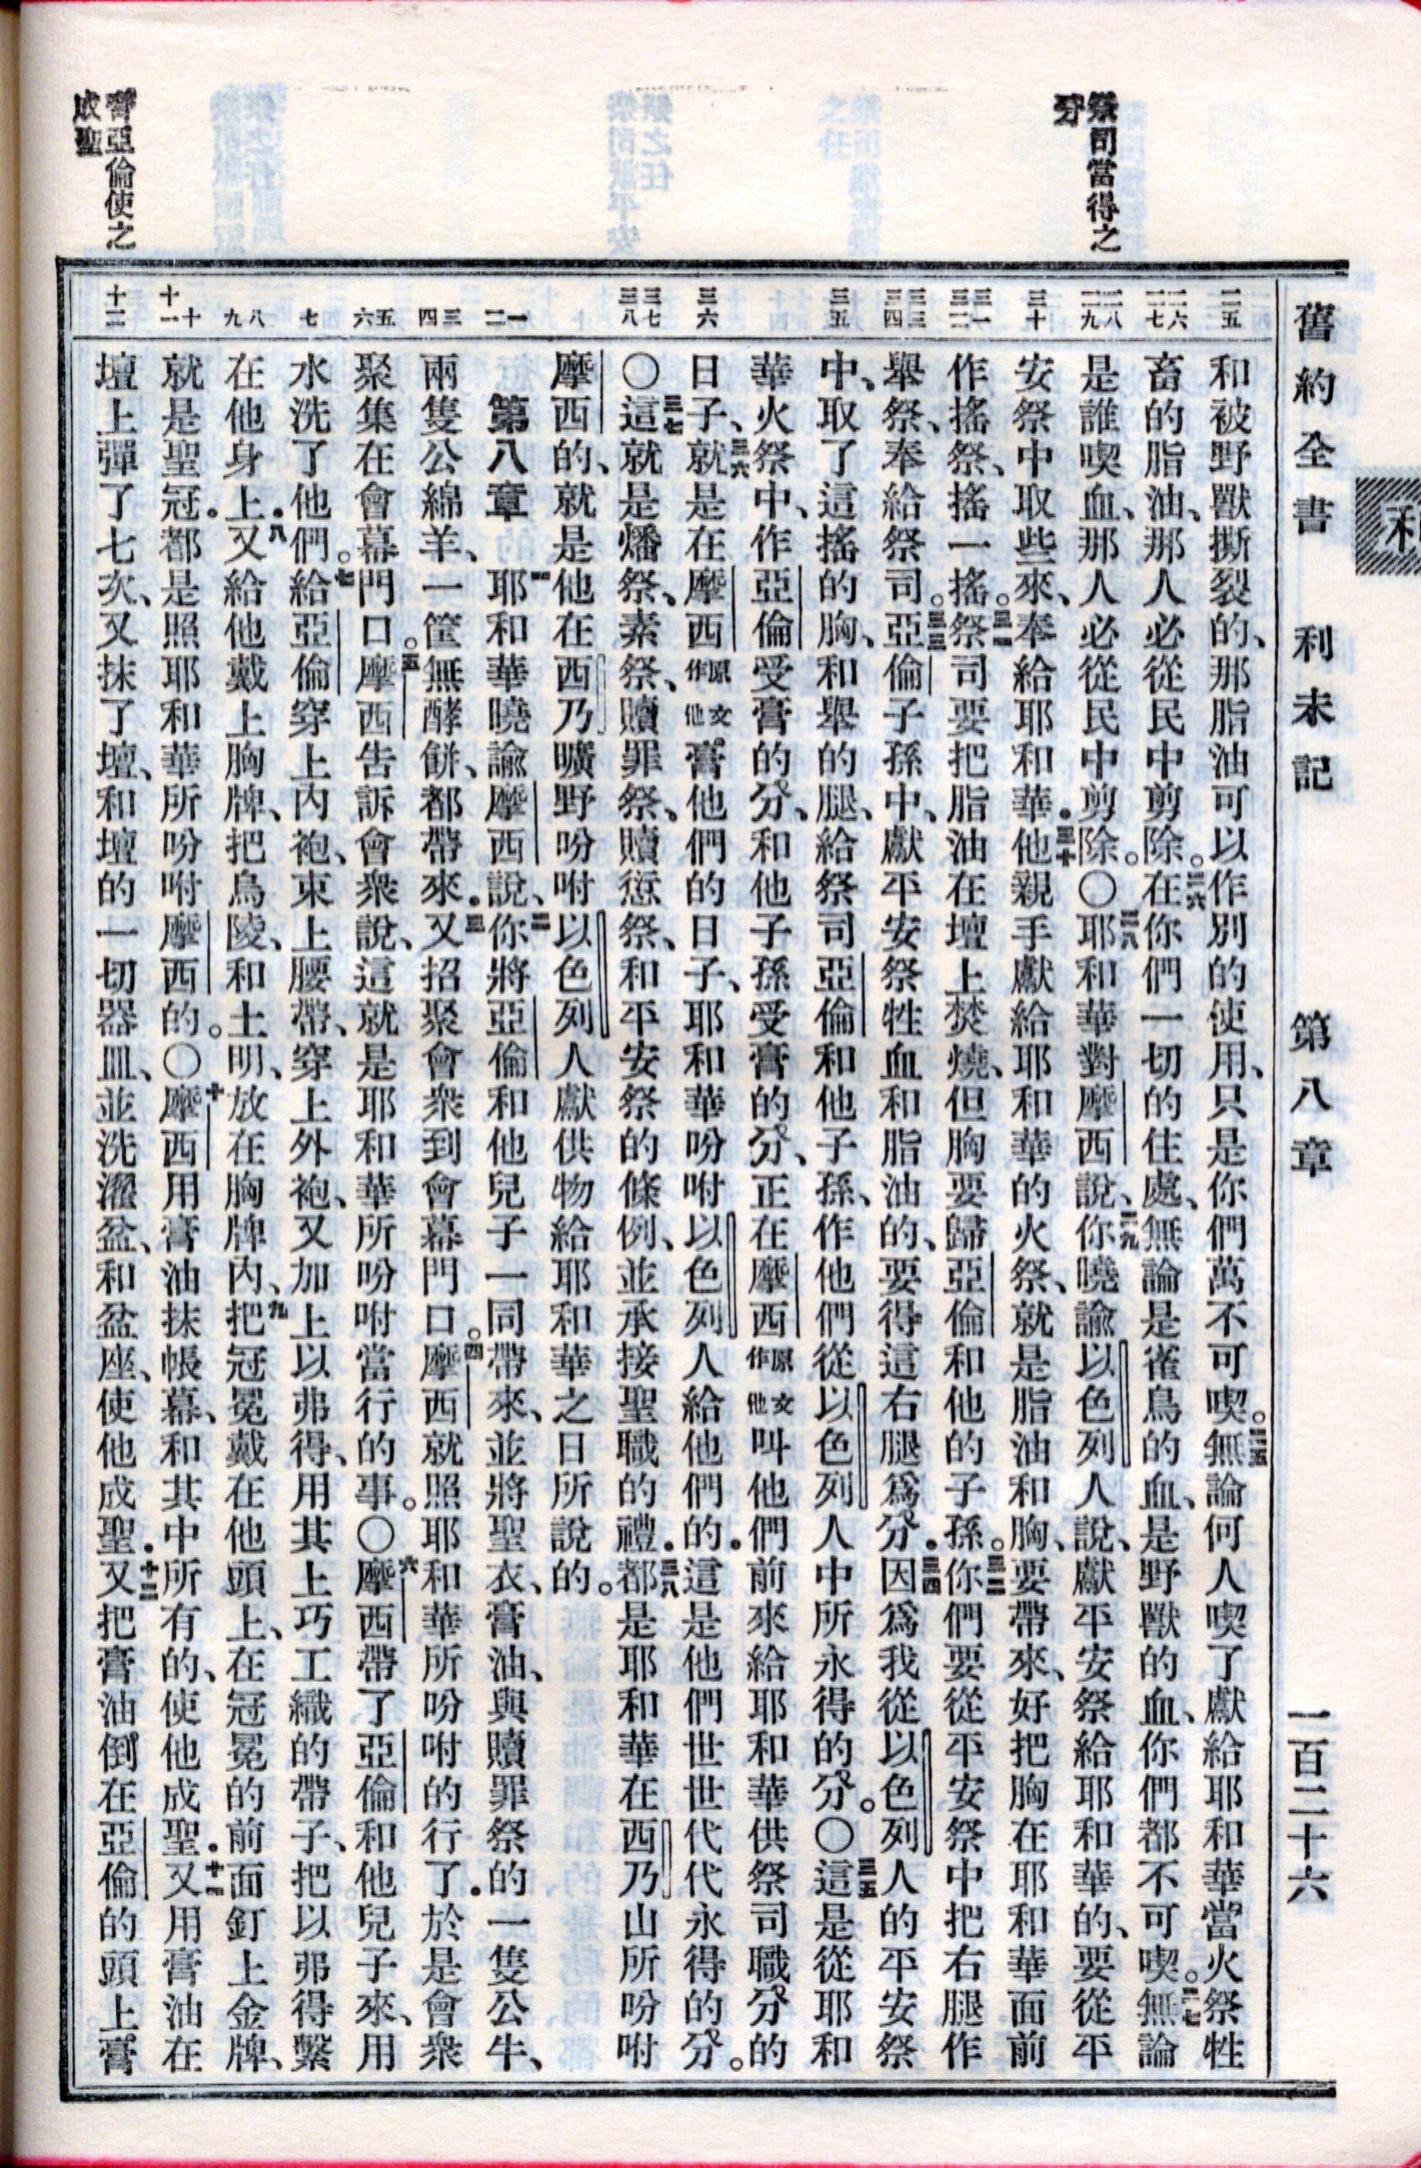 舊約全書 利未記 第八章 一百二十六
祭司當得之
分
膏亞倫使之
成聖
二五
二六
二七
二八
二九
三十
三一
三二
三三
三四
三五
三六
三七
三八
一
二
三
四
五
六
七
八
九
十
十一
十二
和被野獸撕裂的、那脂油可以作別的使用、只是你們萬不可喫。二五無論何人喫了獻給耶和華當火祭牲
畜的脂油、那人必從民中剪除。二六在你們一切的住處、無論是雀鳥的血、是野獸的血、你們都不可喫。二七無論
是誰喫血、那人必從民中剪除。〇二八耶和華對摩西說、二九你曉諭以色列人說、獻平安祭給耶和華的、要從平
安祭中取些來、奉給耶和華．三十他親手獻給耶和華的火祭、就是脂油和胸、要帶來、好把胸在耶和華面前
作搖祭、搖一搖。三一祭司要把脂油在壇上焚燒、但胸要歸亞倫和他的子孫。三二你們要從平安祭中把右腿作
舉祭、奉給祭司。三三亞倫子孫中、獻平安祭牲血和脂油的、要得這右腿爲分．三四因爲我從以色列人的平安祭
中、取了這搖的胸、和舉的腿、給祭司亞倫和他子孫、作他們從以色列人中所永得的分。〇三五這是從耶和
華火祭中、作亞倫受膏的分、和他子孫受膏的分、正在摩西原文作他叫他們前來給耶和華供祭司職分的
日子、三六就是在摩西原文作他膏他們的日子、耶和華吩咐以色列人給他們的．這是他們世世代代永得的分。
〇三七這就是燔祭、素祭、贖罪祭、贖愆祭、和平安祭的條例、並承接聖職的禮．三八都是耶和華在西乃山所吩咐
摩西的、就是他在西乃曠野吩咐以色列人獻供物給耶和華之日所說的。
第八章 一耶和華曉諭摩西說、二你將亞倫和他兒子一同帶來、並將聖衣、膏油、與贖罪祭的一隻公牛、
兩隻公綿羊、一筐無酵餅、都帶來．三又招聚會衆到會幕門口。四摩西就照耶和華所吩咐的行了．於是會衆
聚集在會幕門口。五摩西告訴會衆說、這就是耶和華所吩咐當行的事。〇六摩西帶了亞倫和他兒子來、用
水洗了他們。七給亞倫穿上內袍、束上腰帶、穿上外袍、又加上以弗得、用其上巧工織的帶子、把以弗得繫
在他身上．八又給他戴上胸牌、把烏陵、和土明、放在胸牌內、九把冠冕戴在他頭上、在冠冕的前面釘上金牌、
就是聖冠．都是照耶和華所吩咐摩西的。〇十摩西用膏油抹帳幕、和其中所有的、使他成聖．十一又用膏油在
壇上彈了七次、又抹了壇、和壇的一切器皿、並洗濯盆、和盆座、使他成聖．十二又把膏油倒在亞倫的頭上膏